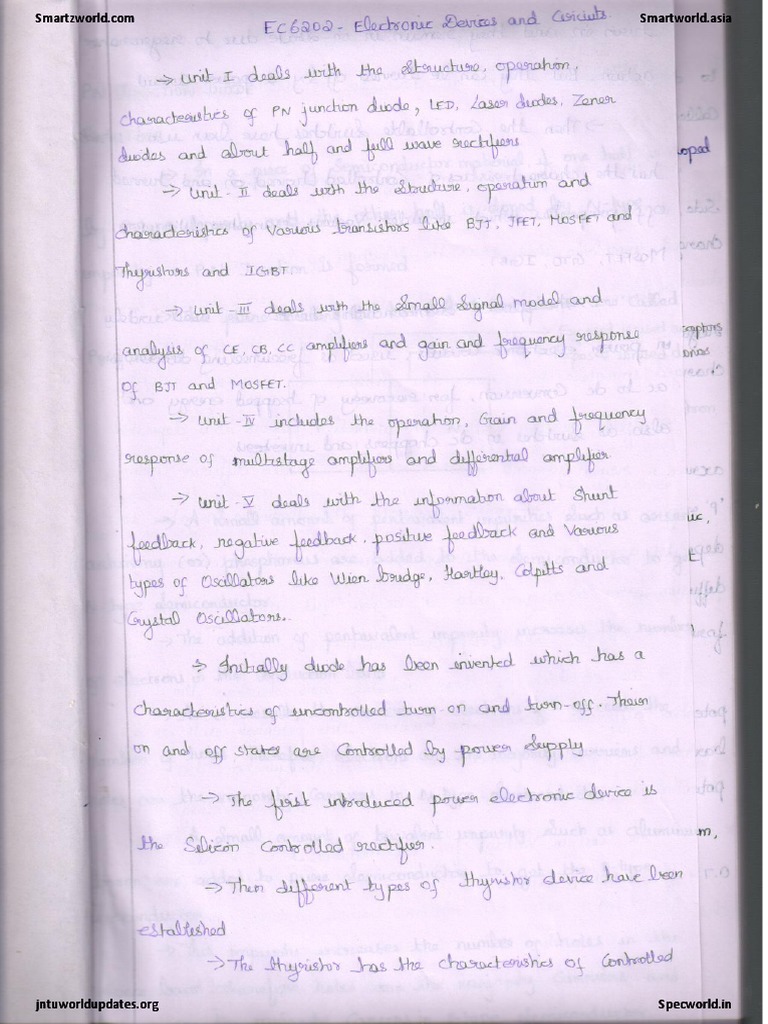 Smartzworld.com Smartworld.asia
EC6202 - Electronic Devices and Circuits.
→ Unit I deals with the structure, operation,
characteristics of PN junction diode, LED, Laser diodes, Zener
diodes and about half and full wave rectifiers
oped
→ Unit - II deals with the structure, operation and
characteristics of Various transistors like BJT, JFET, MOSFET and
Thyristors and IGBT
→ Unit - III deals with the Small Signal model and
analysis of CE, CB, CC amplifiers and gain and frequency response
of BJT and MOSFET.
→ Unit - IV includes the operation, Gain and frequency
response of multistage amplifiers and differential amplifier
→ Unit - V deals with the information about Shunt
feedback, negative feedback, positive feedback and Various
types of Oscillators like Wien bridge, Hartley, Colpitts and
Crystal Oscillators.
→ Initially diode has been invented which has a
characteristics of uncontrolled turn on and turn-off. Their
on and off states are Controlled by power Supply
→ The first introduced power electronic device is
the Silicon Controlled rectifier.
m,
→ Then different types of thyristor device have been
established
→ The thyristor has the characteristics of Controlled
jntuworldupdates.org Specworld.in